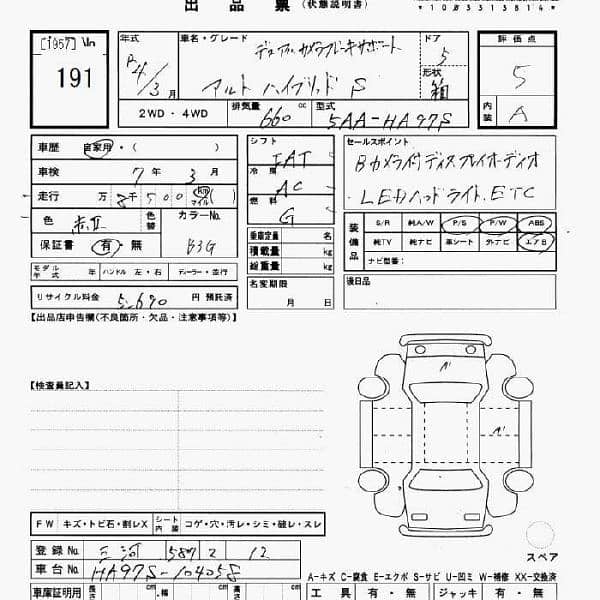 出品票 (状態説明書)
*1003313814*
191
年式 車名・グレード ドア 評価点
R4/3月 アルト ハイブリッド S 5 形状 箱 5
ディスプレイ カメラ ブレーキサポート
内装 A
2WD・4WD 排気量 660 cc 型式 5AA-HA97S
車歴 自家用・( ) シフト FAT セールスポイント
車検 7年 3月 冷房 AC Bカメラ ディスプレイオーディオ
走行 万 8千500 km マイル ( ) 燃料 G LEDヘッドライト、ETC
色 赤Ⅱ 色替 カラーNo. B3G
保証書 有・無
乗車定員 名
積載量 kg
総重量 kg
装備品 S/R 純A/W P/S P/W ABS
純TV 純ナビ 革シート 外ナビ エアB
ナビ型番:
モデル年式 年 ハンドル 左・右 ディーラー・並行
名変期限 月 日
後日品
リサイクル料金 5,690 円 預託済
【出品店申告欄(不良箇所・欠品・注意事項等)】
【検査員記入】
FW キズ・トビ石・割レX シート内装 コゲ・穴・汚レ・シミ・破レ・スレ
スペア
登録No. 三河 587 12
車台No. HA97S-104058
A-キズ C-腐食 E-エクボ S-サビ U-凹ミ W-補修 XX-交換済
車庫証明用 長さ cm 幅 cm 高さ cm 工具 有・無 ジャッキ 有・無